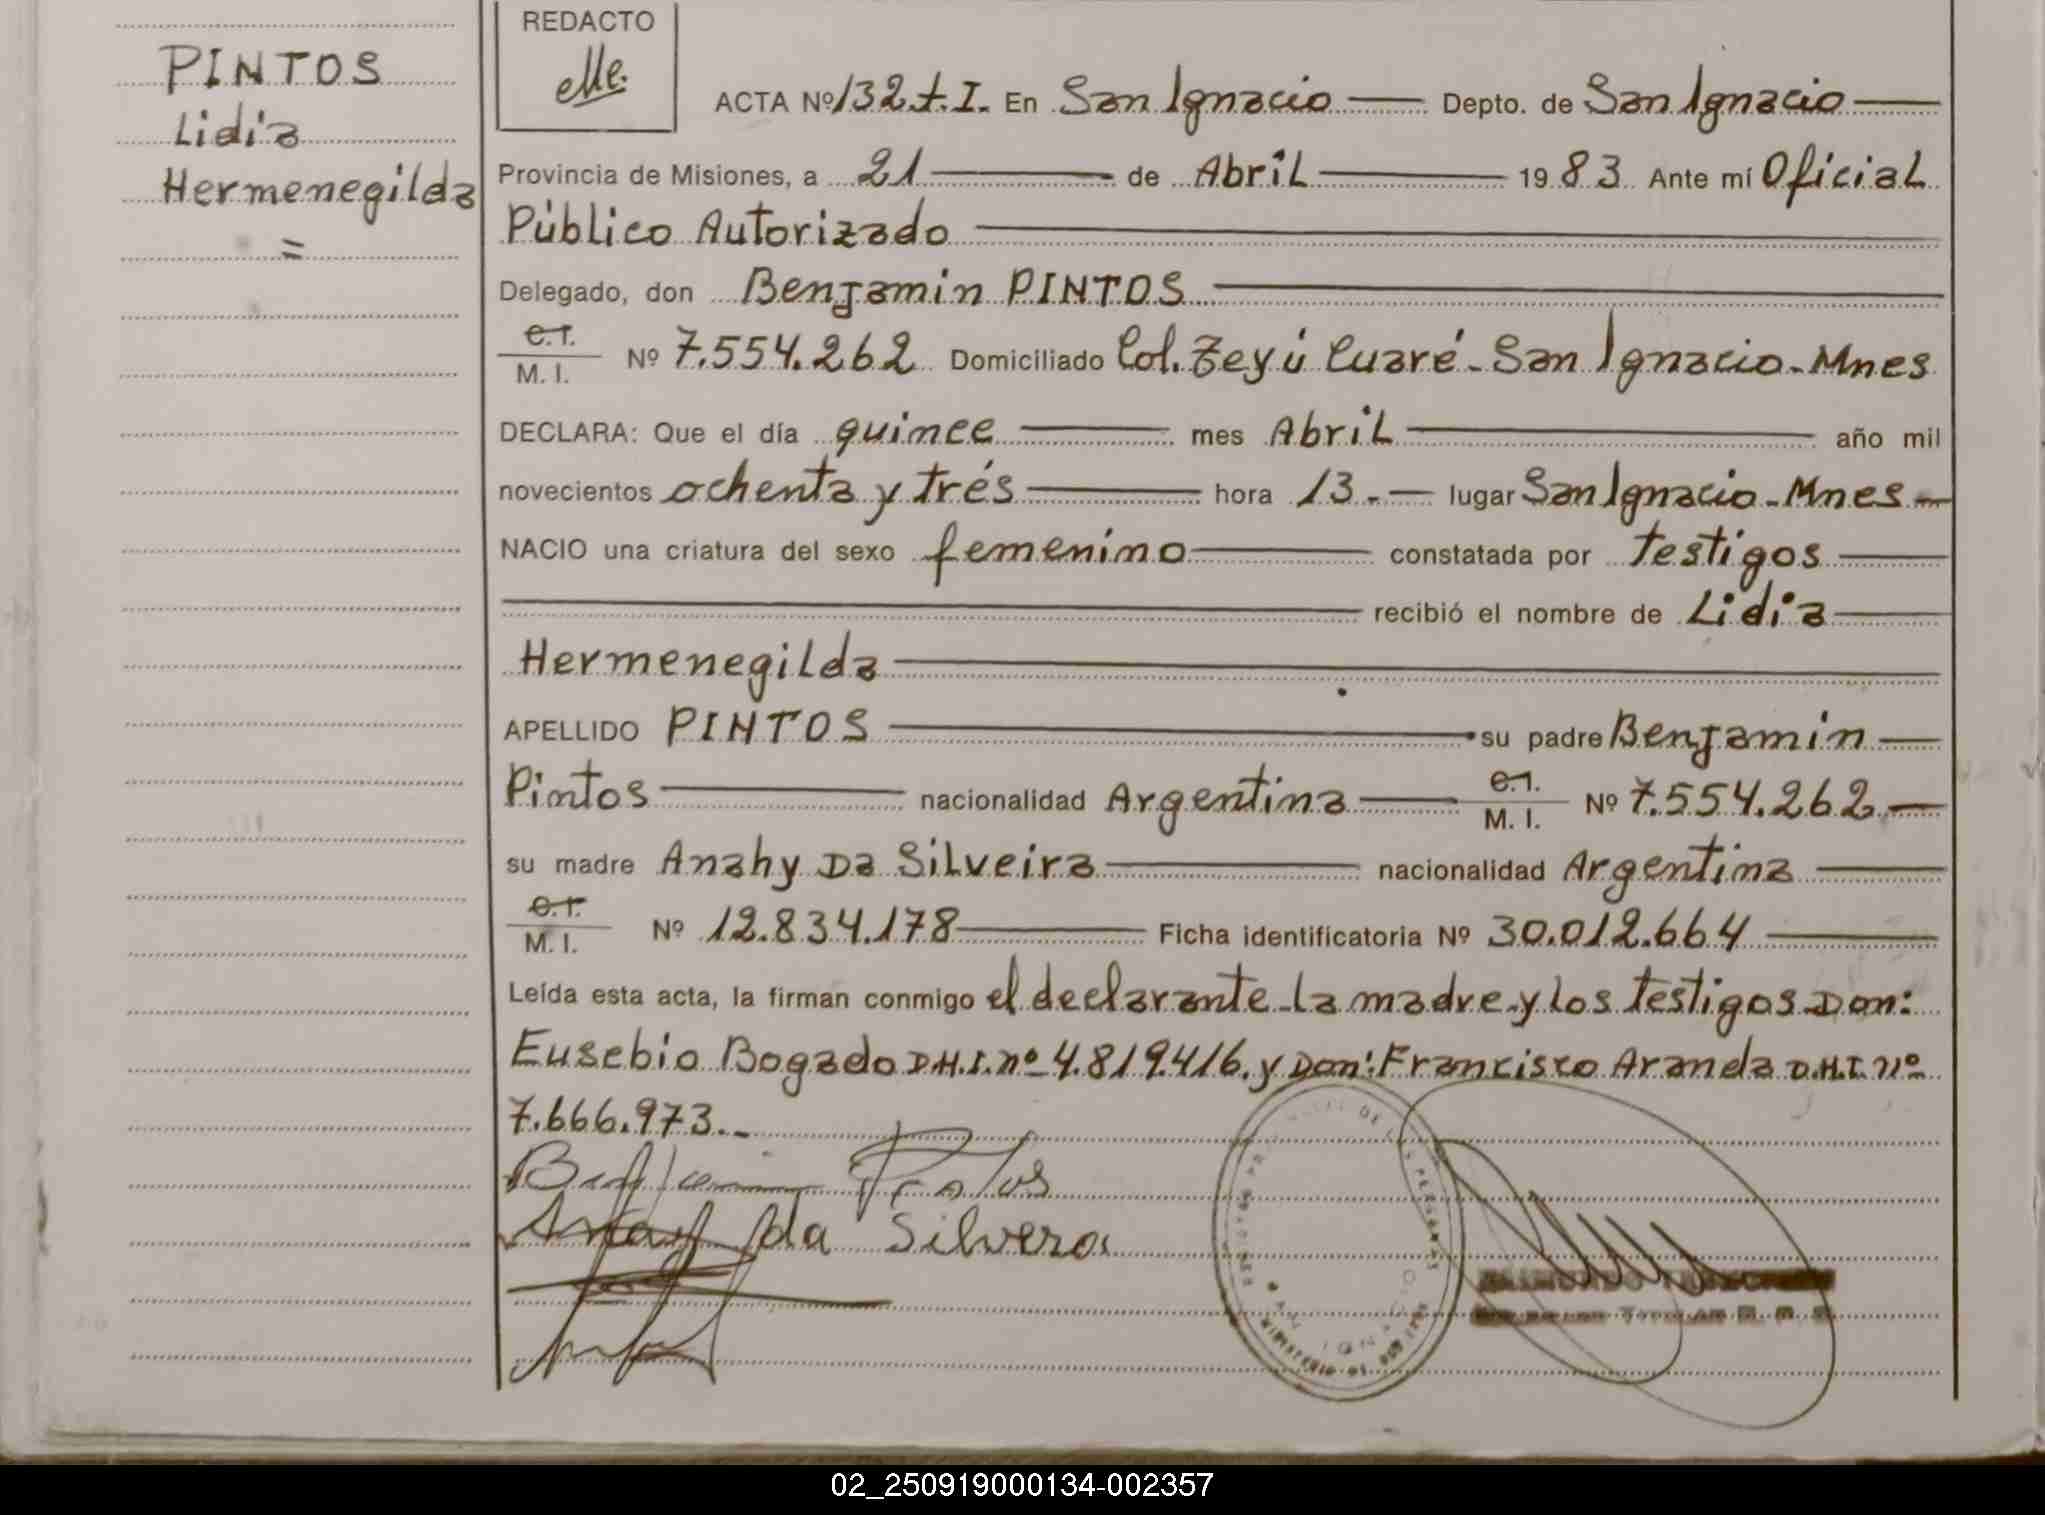 PINTOS
Lidia
Hermenegilda
=
REDACTO
ACTA Nº 132.t.I. En San Ignacio Depto. de San Ignacio
Provincia de Misiones, a 21 de Abril 1983 Ante mí Oficial
Público Autorizado
Delegado, don Benjamin PINTOS
C.I.
M. I. Nº 7.554.262 Domiciliado Col. Teyú Cuaré - San Ignacio - Mnes
DECLARA: Que el día quince mes Abril año mil
novecientos ochenta y trés hora 13.- lugar San Ignacio - Mnes -
NACIO una criatura del sexo femenino constatada por testigos
recibió el nombre de Lidia
Hermenegilda
APELLIDO PINTOS su padre Benjamin
Pintos nacionalidad Argentina C.I. M. I. Nº 7.554.262
su madre Anahy Da Silveira nacionalidad Argentina
C.I.
M. I. Nº 12.834.178 Ficha identificatoria Nº 30.012.664
Leída esta acta, la firman conmigo el declarante - la madre - y los testigos Don:
Eusebio Bogado D.N.I. nº 4.819.416. y Don: Francisco Aranda D.N.I. nº
7.666.973.-
Benjamin Pintos
da Silvera
02_250919000134-002357